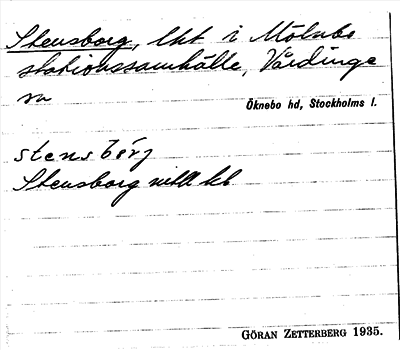 Stensborg, lht i Mölnbo
stationssamhälle, Vårdinge
sn
Öknebo hd, Stockholms l.
stensbórj
Stensborg
GÖRAN ZETTERBERG 1935.